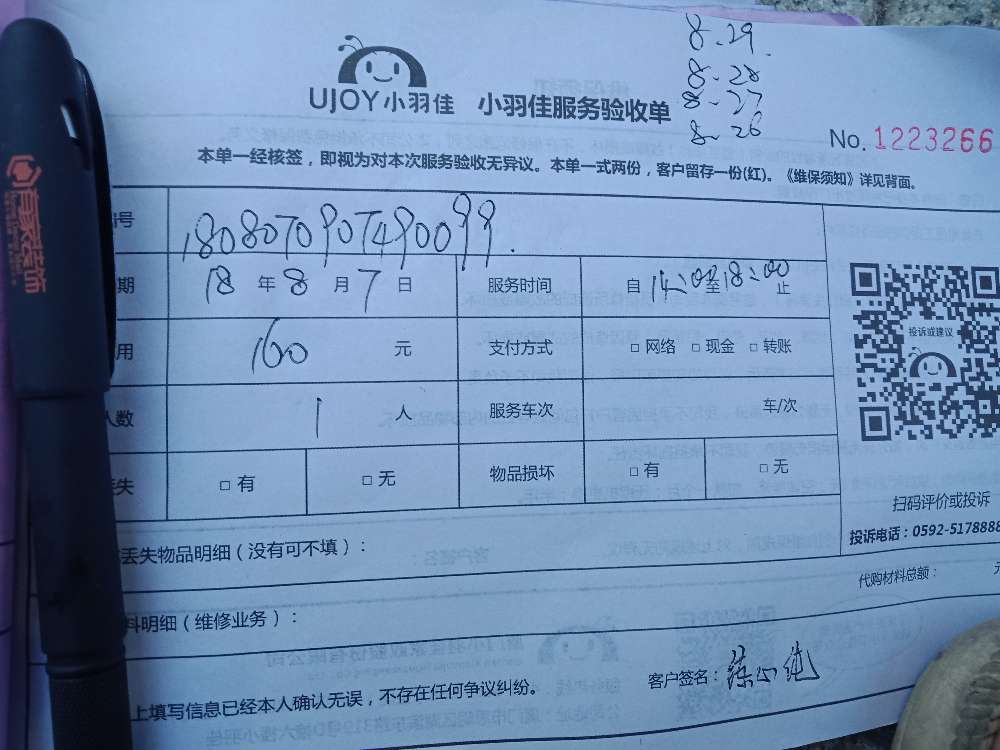 8-29
8-28
8-27
8-26
UJOY小羽佳 小羽佳服务验收单
No. 1223266
本单一经核签，即视为对本次服务验收无异议。本单一式两份，客户留存一份(红)。《维保须知》详见背面。
号 1808070907490099.
期 18 年 8 月 7 日 服务时间 自 14:00 至 18:00 止
用 160 元 支付方式 □ 网络 □ 现金 □ 转账
人数 1 人 服务车次 车/次
失 □ 有 □ 无 物品损坏 □ 有 □ 无
投诉或建议
扫码评价或投诉
投诉电话：0592-5178888
丢失物品明细（没有可不填）：
代购材料总额： 元
料明细（维修业务）：
上填写信息已经本人确认无误，不存在任何争议纠纷。
客户签名：
百家装饰